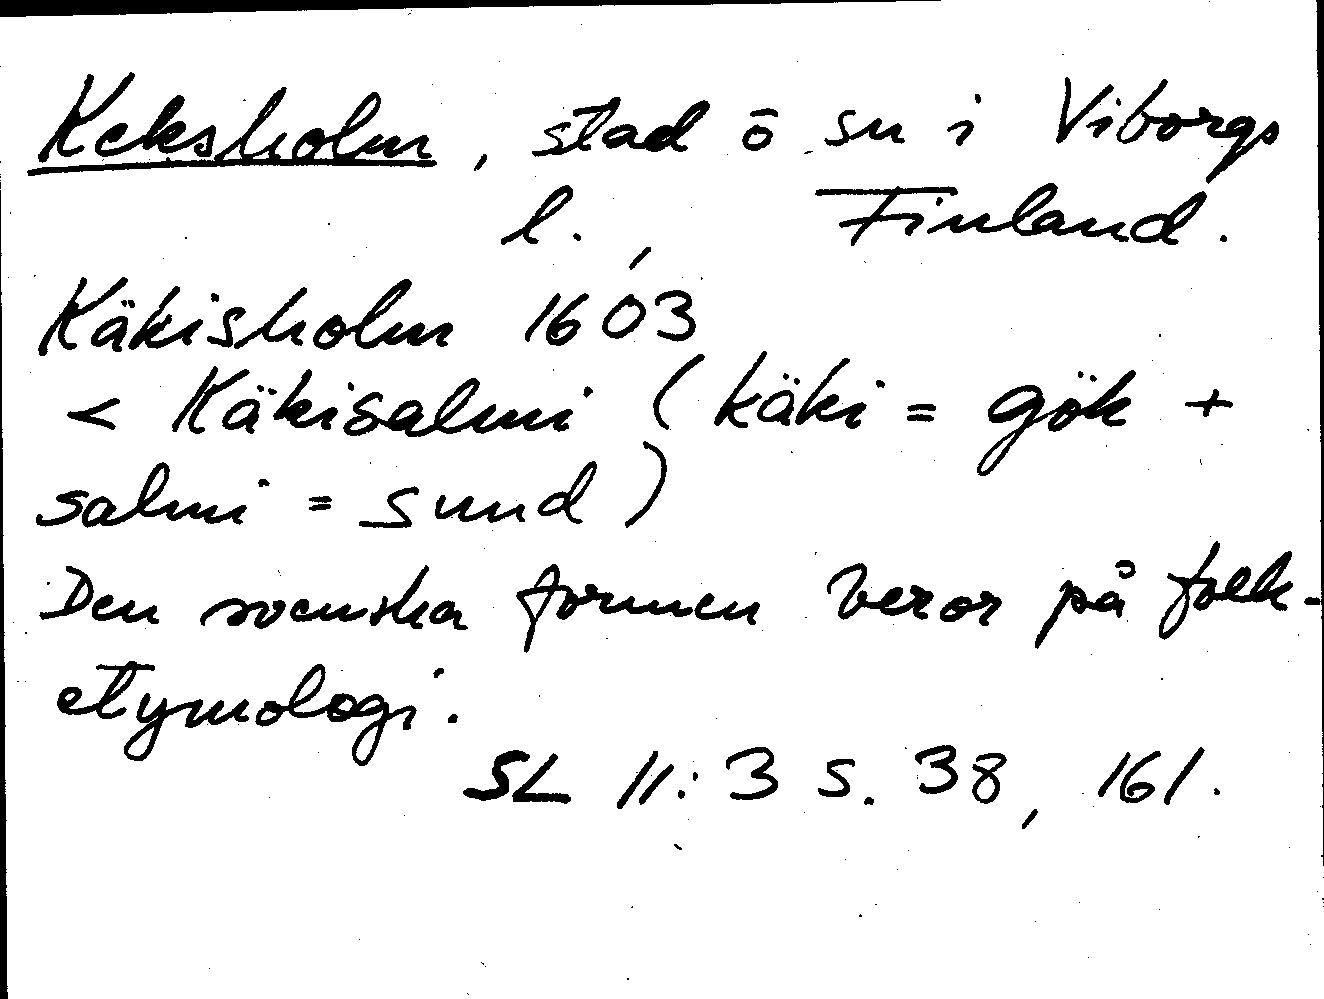 Keksholm, stad ö su i Viborgs
l., Finland.
Käkisholm 1603
< Käkisalmi (käki = gök +
salmi = sund)
Den svenska formen beror på folk-
etymologi.
SL 11:3 s. 38, 161.